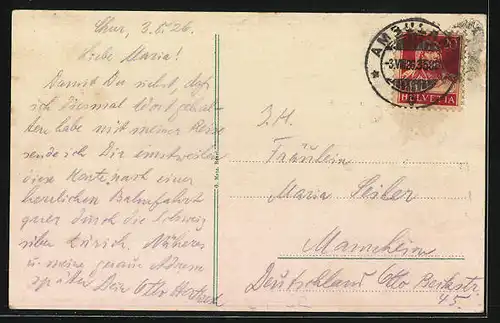 Chur, 3.8.26.
Liebe Maria!
Damit Du siehst, daß
ich diesmal Wort gehal-
ten habe mit meiner Reise
sende ich Dir einstweilen
diese Karte nach einer
herrlichen Bahnfahrt
quer durch die Schweiz
über Zürich. Näheres
u. meine genaue Adresse
später Dein Otto
AMBULANT
-3.VIII.26.
20
HELVETIA
Fräulein
Maria Seiler
Mannheim
Deutschland Otto Beckstr.
45.